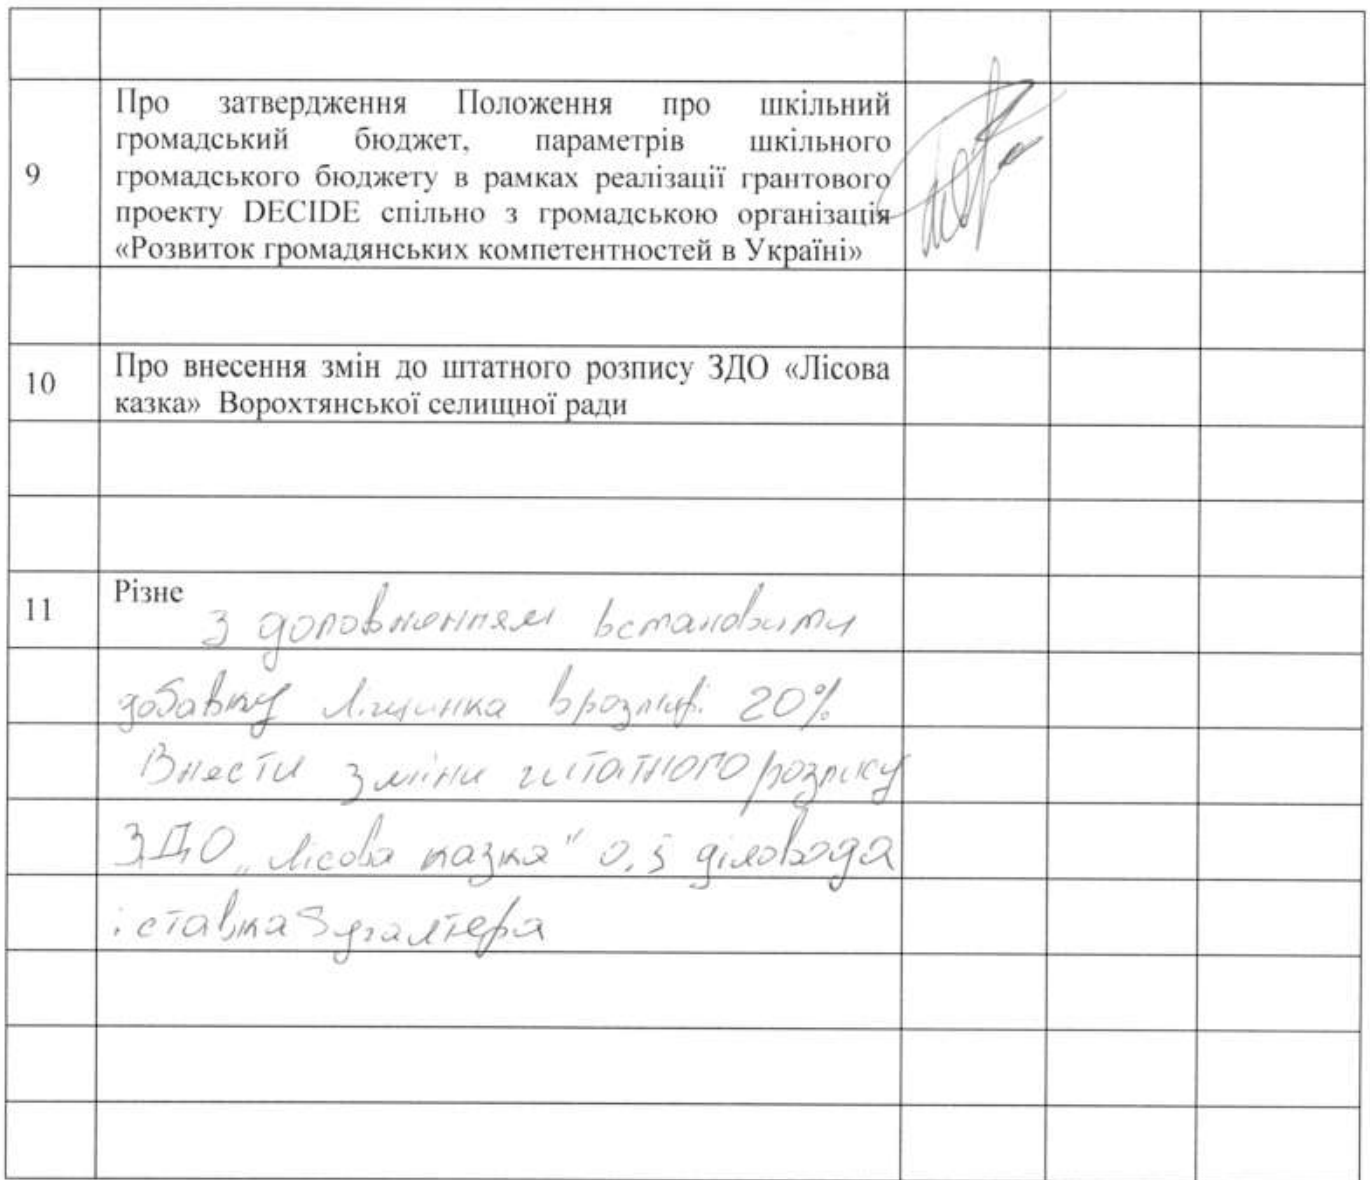 9
Про затвердження Положення про шкільний
громадський бюджет, параметрів шкільного
громадського бюджету в рамках реалізації грантового
проекту DECIDE спільно з громадською організація
«Розвиток громадянських компетентностей в Україні»
10
Про внесення змін до штатного розпису ЗДО «Лісова
казка» Ворохтянської селищної ради
11
Різне
з доповненням встановити
добавку в розмірі 20%
Внести зміни штатного розпису
ЗДО „Лісова казка" 0,5 діловода
і ставка бугалтера